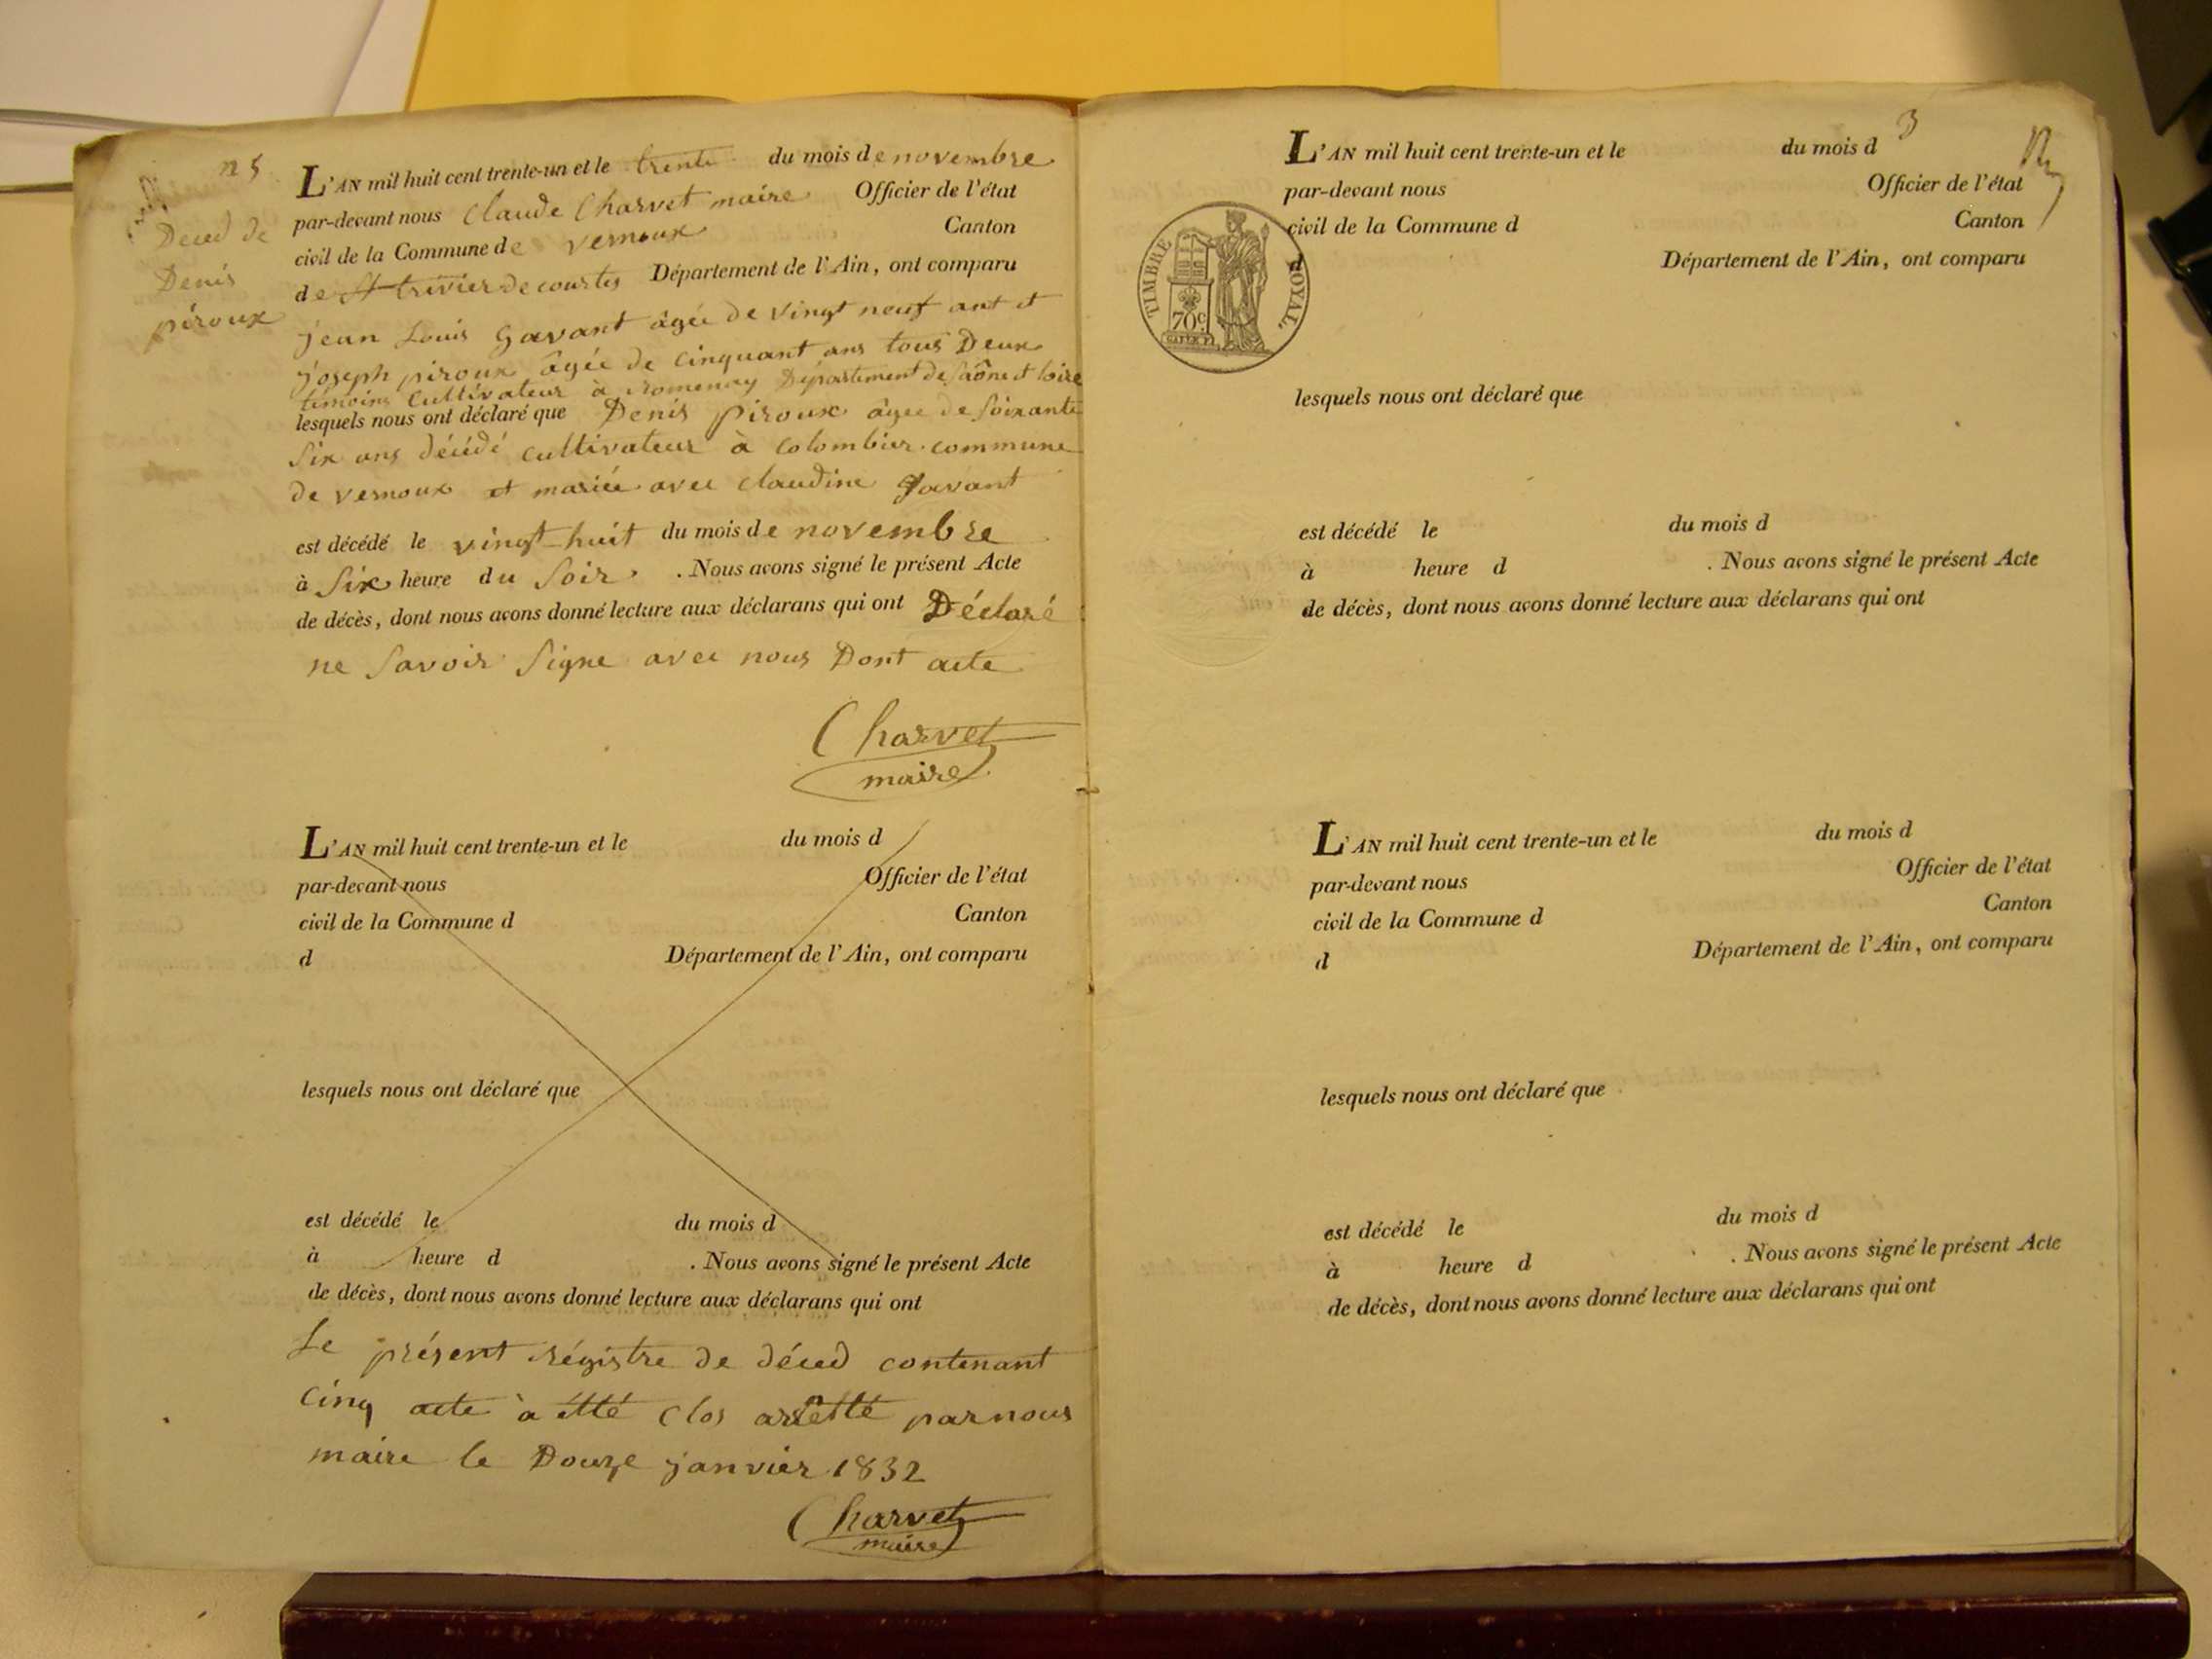 n 5
Deced de
Denis
piroux
L'AN mil huit cent trente-un et le trente du mois de novembre
par-devant nous Claude Charvet maire Officier de l'état
civil de la Commune de vernoux Canton
de St trivier de courtes Département de l'Ain, ont comparu
jean Louis gavant âgée de vingt neuf ant et
joseph piroux âgée de cinquant ans tous Deux
temoins cultivateur à romenay Département de Saône et loire
lesquels nous ont déclaré que Denis piroux âgée de soixante
six ans décédé cultivateur à colombier commune
de vernoux et mariée avec claudine gavant
est décédé le vingt huit du mois de novembre
à six heure du soir . Nous avons signé le présent Acte
de décès, dont nous avons donné lecture aux déclarans qui ont Déclaré
ne savoir signe avec nous Dont acte
Charvet
maire
L'AN mil huit cent trente-un et le du mois d
par-devant nous Officier de l'état
civil de la Commune d Canton
d Département de l'Ain, ont comparu
lesquels nous ont déclaré que
est décédé le du mois d
à heure d . Nous avons signé le présent Acte
de décès, dont nous avons donné lecture aux déclarans qui ont
Le présent régistre de déced contenant
cinq acte à étté clos arrètté par nous
maire le Douze janvier 1832
Charvet
maire
3
L'AN mil huit cent trente-un et le du mois d
par-devant nous Officier de l'état
civil de la Commune d Canton
Département de l'Ain, ont comparu
TIMBRE ROYAL.
70c
lesquels nous ont déclaré que
est décédé le du mois d
à heure d . Nous avons signé le présent Acte
de décès, dont nous avons donné lecture aux déclarans qui ont
L'AN mil huit cent trente-un et le du mois d
par-devant nous Officier de l'état
civil de la Commune d Canton
d Département de l'Ain, ont comparu
lesquels nous ont déclaré que
est décédé le du mois d
à heure d . Nous avons signé le présent Acte
de décès, dont nous avons donné lecture aux déclarans qui ont